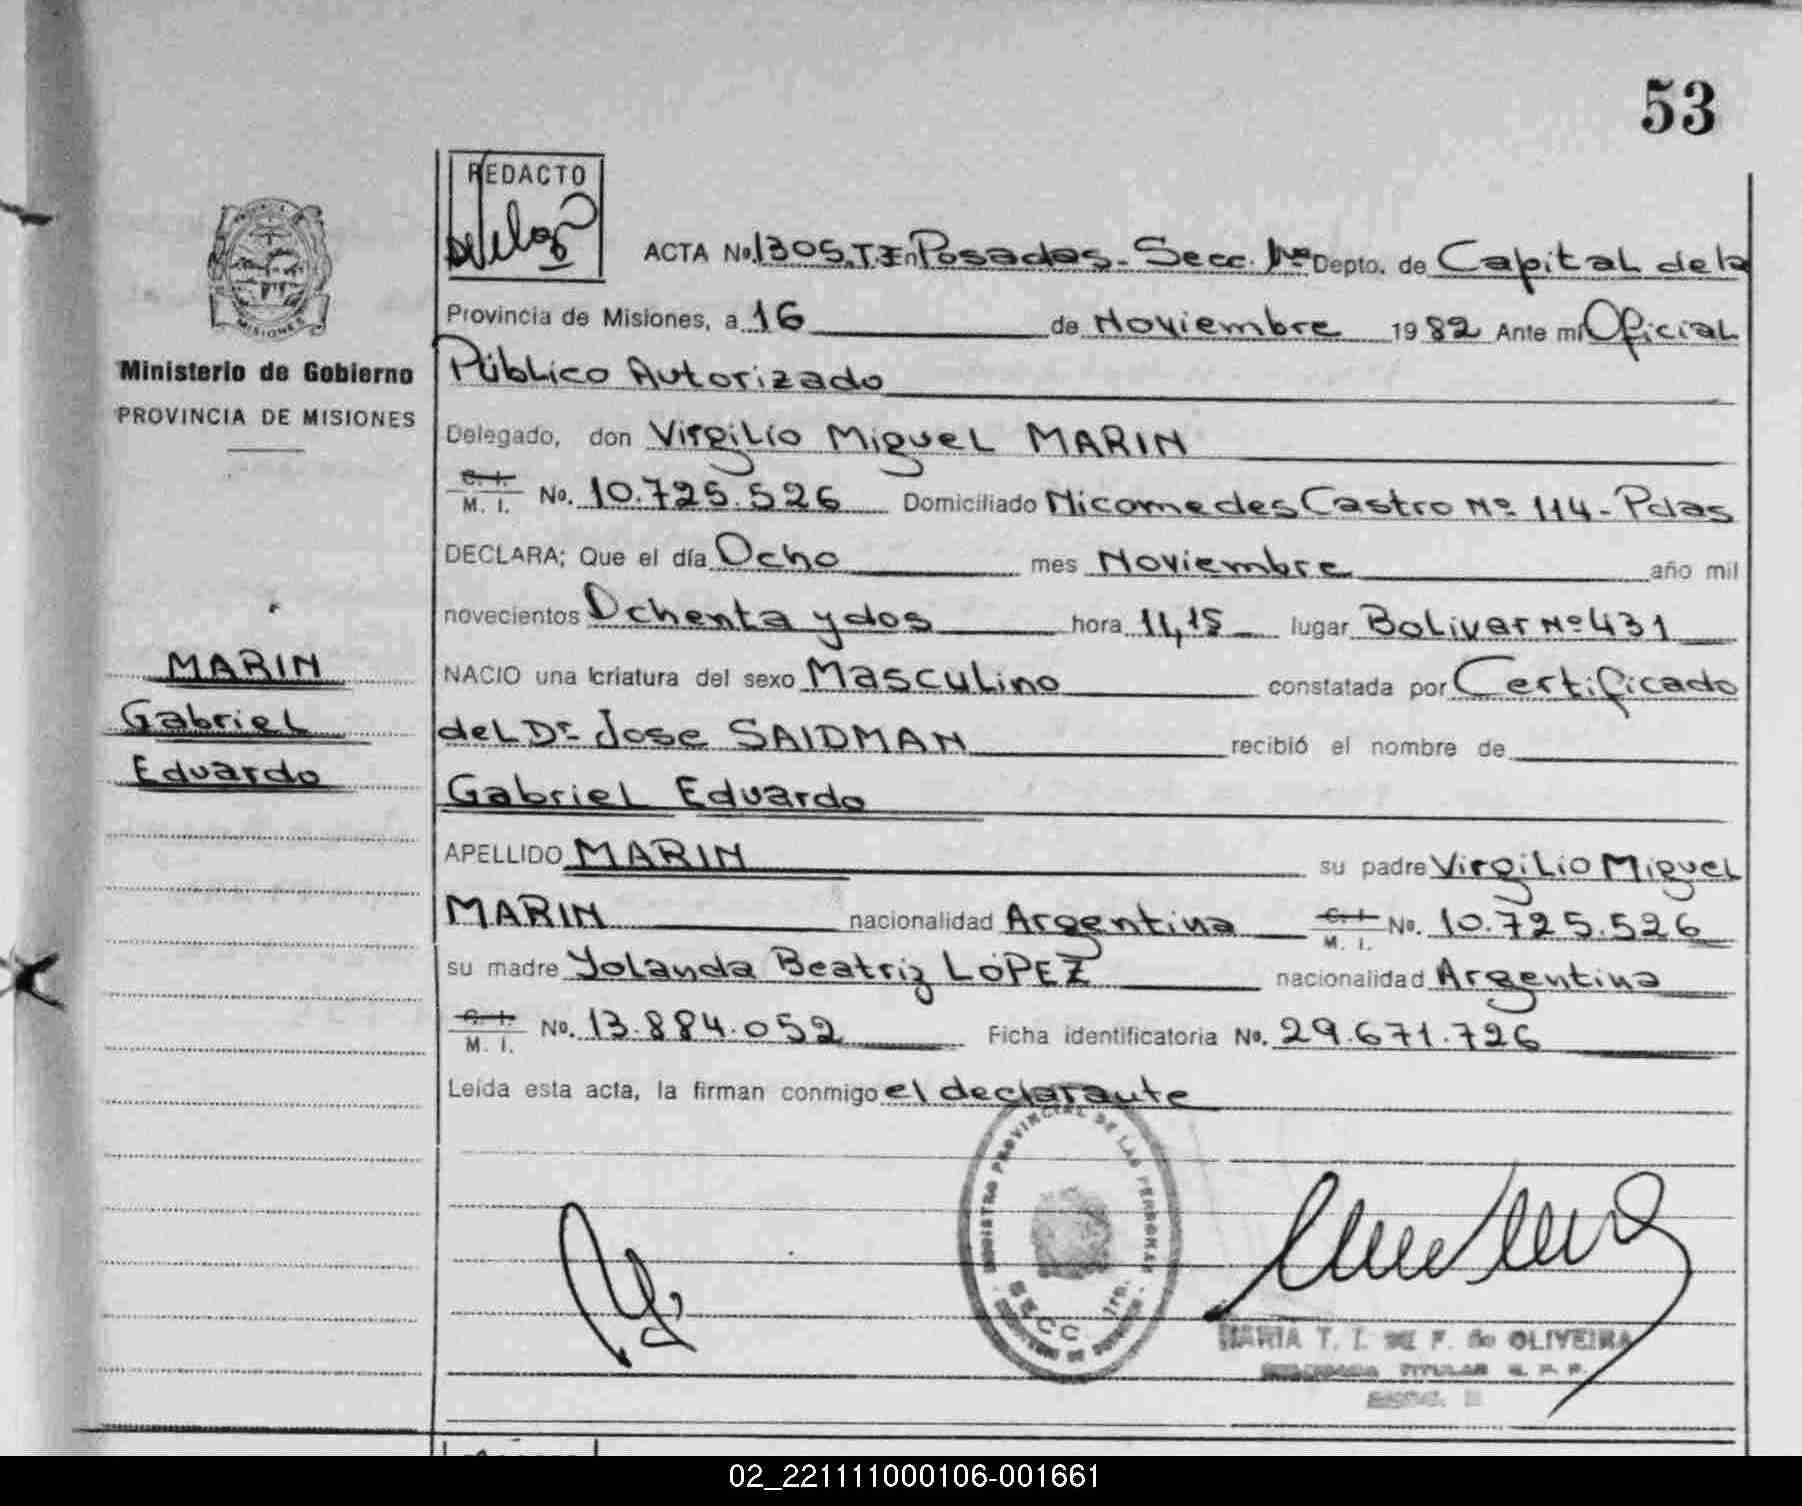 53
REDACTO
ACTA No. 1305. T. I En Posadas - Secc. 1ra Depto. de Capital de la
Provincia de Misiones, a 16 de Noviembre 1982 Ante mi Oficial
Público Autorizado
MISIONES
Ministerio de Gobierno
PROVINCIA DE MISIONES
Delegado, don Virgilio Miguel MARIN
C. I. M. I. No. 10.725.526 Domiciliado Nicomedes Castro Nº 114 - Pdas
DECLARA; Que el día Ocho mes Noviembre año mil
novecientos Ochenta y dos hora 11,15 lugar Bolivar Nº 431
MARIN
Gabriel
Eduardo
NACIO una criatura del sexo Masculino constatada por Certificado
del Dr. Jose SAIDMAN recibió el nombre de
Gabriel Eduardo
APELLIDO MARIN su padre Virgilio Miguel
MARIN nacionalidad Argentina C. I. M. I. No. 10.725.526
su madre Yolanda Beatriz LOPEZ nacionalidad Argentina
C. I. M. I. No. 13.884.052 Ficha identificatoria No. 29.671.726
Leída esta acta, la firman conmigo el declarante
REGISTRO PROVINCIAL DE LAS PERSONAS
SECC. 1ra.
MARIA T. I. DE F. de OLIVEIRA
TITULAR
02_221111000106-001661